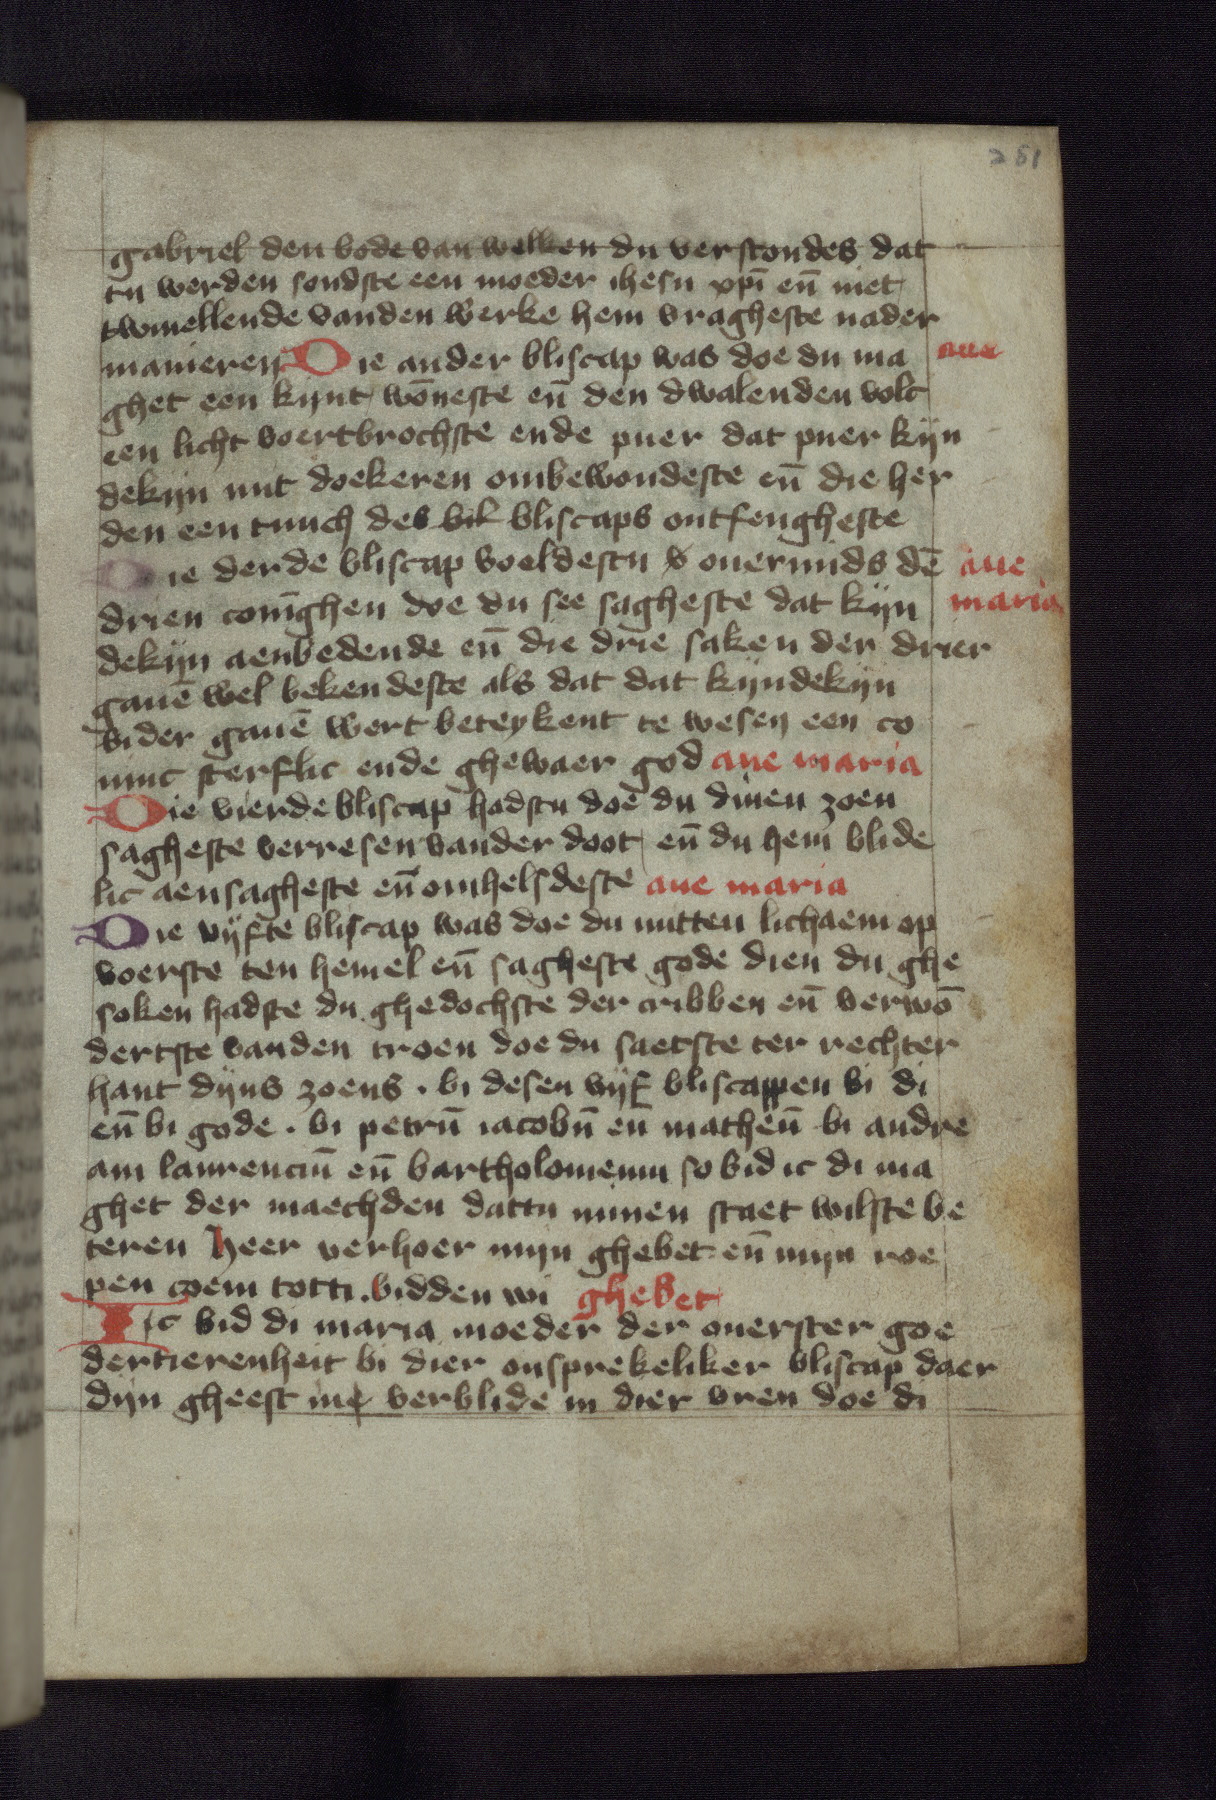 251
gabriel den bode van welken du verstondes dat
tu werden soudste een moeder ihesu xp̄i en̄ niet
twiuellende vanden werke hem vragheste nader
manieren Die ander bliscap was doe du ma aue
ghet een kijnt wōneste en̄ den dwalenden volc
een licht voertbrochste ende puer dat puer kijn
dekijn mit doekeren ombewondeste en̄ die her
den een tuuch des bliscaps ontfengheste
Die derde bliscap voeldestu ouermids dē aue
drien conīghen doe du see sagheste dat kijn maria
dekijn aenbedende en̄ die drie saken der drier
gauē wel bekendeste als dat dat kijndekijn
bi der gauē wert beteykent te wesen een co
ninc sterflic ende ghewaer god aue maria
Die vierde bliscap hadstu doe du dinen zoen
sagheste verresen vander doot en̄ du hem blide
lic aensagheste en̄ omhelsdeste aue maria
Die vijfte bliscap was doe du mitten lichaem op
voerste ten hemel en̄ sagheste gode dien du ghe
soken hadste du ghedochste der cribben en̄ verwō
dertste vanden troen doe du saetste ter rechter
hant dijns zoens . bi desen vijf bliscappen bi di
en̄ bi gode . bi petrū iacobū en̄ matheū bi andre
am laurenciū en̄ bartholomeum so bid ic di ma
ghet der maechden dattu minen staet wilste be
teren heer verhoer mijn ghebet en̄ mijn roe
pen coem totti . bidden wi ghebet
Ic bid di maria moeder der ouerster goe
dertierenheit bi dier onsprekeliker bliscap daer
dijn gheest me verblide in dier vren doe di